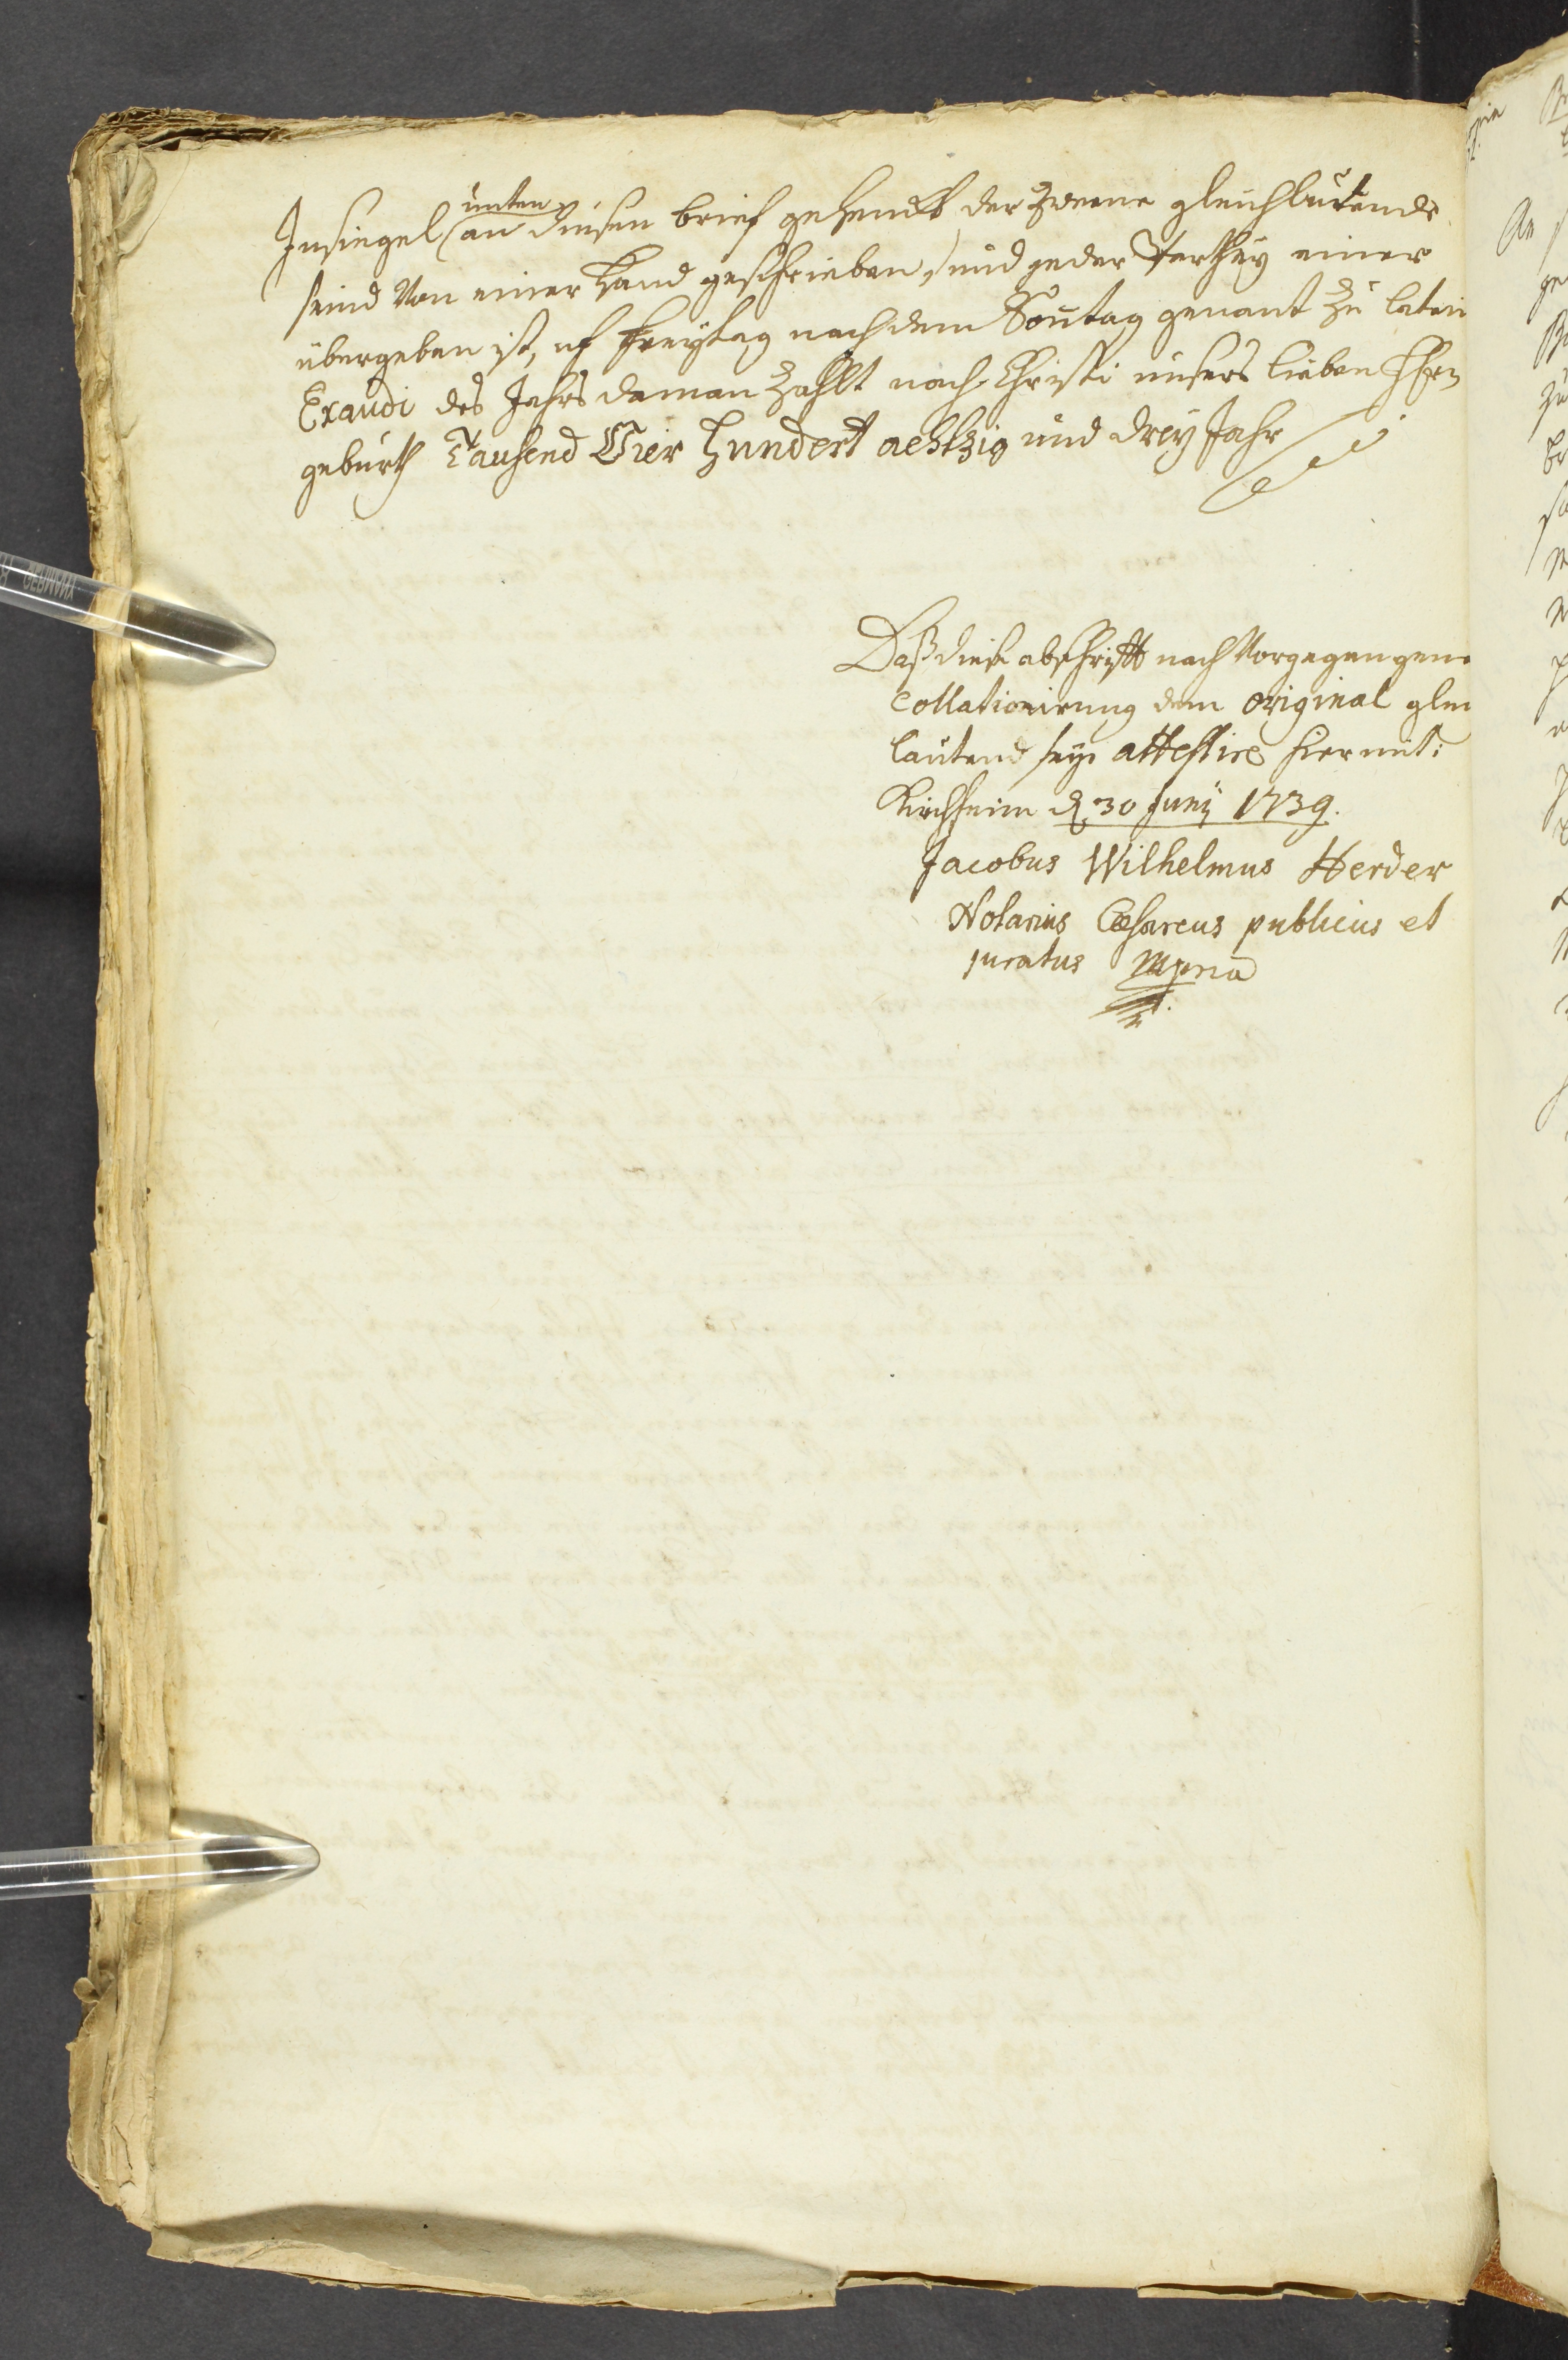 Insiegel unten an diesen brief gehenckt, der zweene gleichlutende
seind Von einer Hand geschrieben, und jeder Parthey einer
übergeben ist, uf Freytag nach dem Sontag genant zu latein
Exaudi des Jahrs da man zahlt nach Christi unsers lieben Hhrn
geburth Tausend Vier Hundert achtzig und drey Jahr
Daß diese abschrifft nach Vorgegangene
Collationirung dem original glei
lautend seye attestire hiermit:
Kirchheim d. 30 Junij 1739.
Jacobus Wilhelmus Herder
Notarius Cæsareus publicus et
juratus mpria